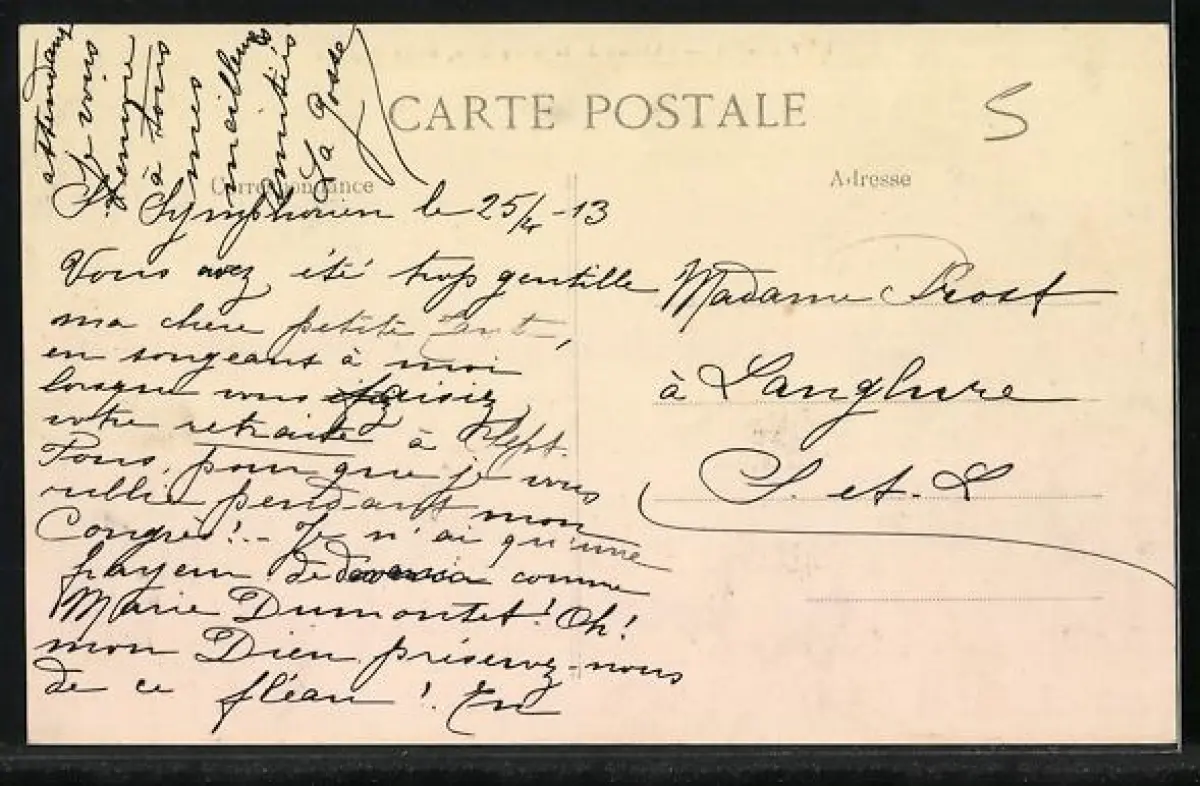 CARTE POSTALE
5
Correspondance
Adresse
St Symphorien le 25/4-13
Vous avez été trop gentille
ma chère petite Tant,
en songeant à moi
lorsque vous faisiez
votre retraite à Sept.
Fons, pour que je vous
oublie pendant mon
Congrès!.. Je n'ai qu'une
frayeur de comme
Marie Dumontet! Oh!
mon Dieu préservez-nous
de ce fléau! En
attendant
je vous
renvoie
à tous
mes
meilleures
amitiés
La Gosse
Madame Prost
à Langlure
S. et. L